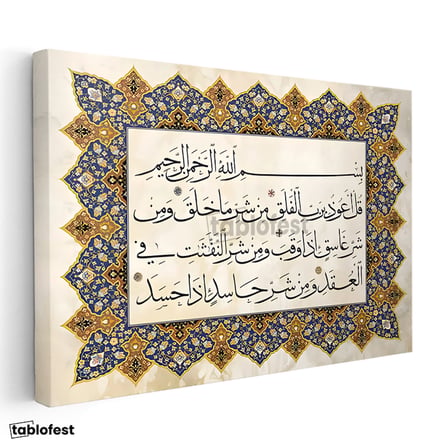 بِسْمِ اللَّهِ الرَّحْمَنِ الرَّحِيمِ
قُلْ أَعُوذُ بِرَبِّ الْفَلَقِ مِنْ شَرِّ مَا خَلَقَ وَمِنْ
شَرِّ غَاسِقٍ إِذَا وَقَبَ وَمِنْ شَرِّ النَّفَّثَتِ فِي
الْعُقَدِ وَمِنْ شَرِّ حَاسِدٍ إِذَا حَسَدَ
tablofest
tablofest